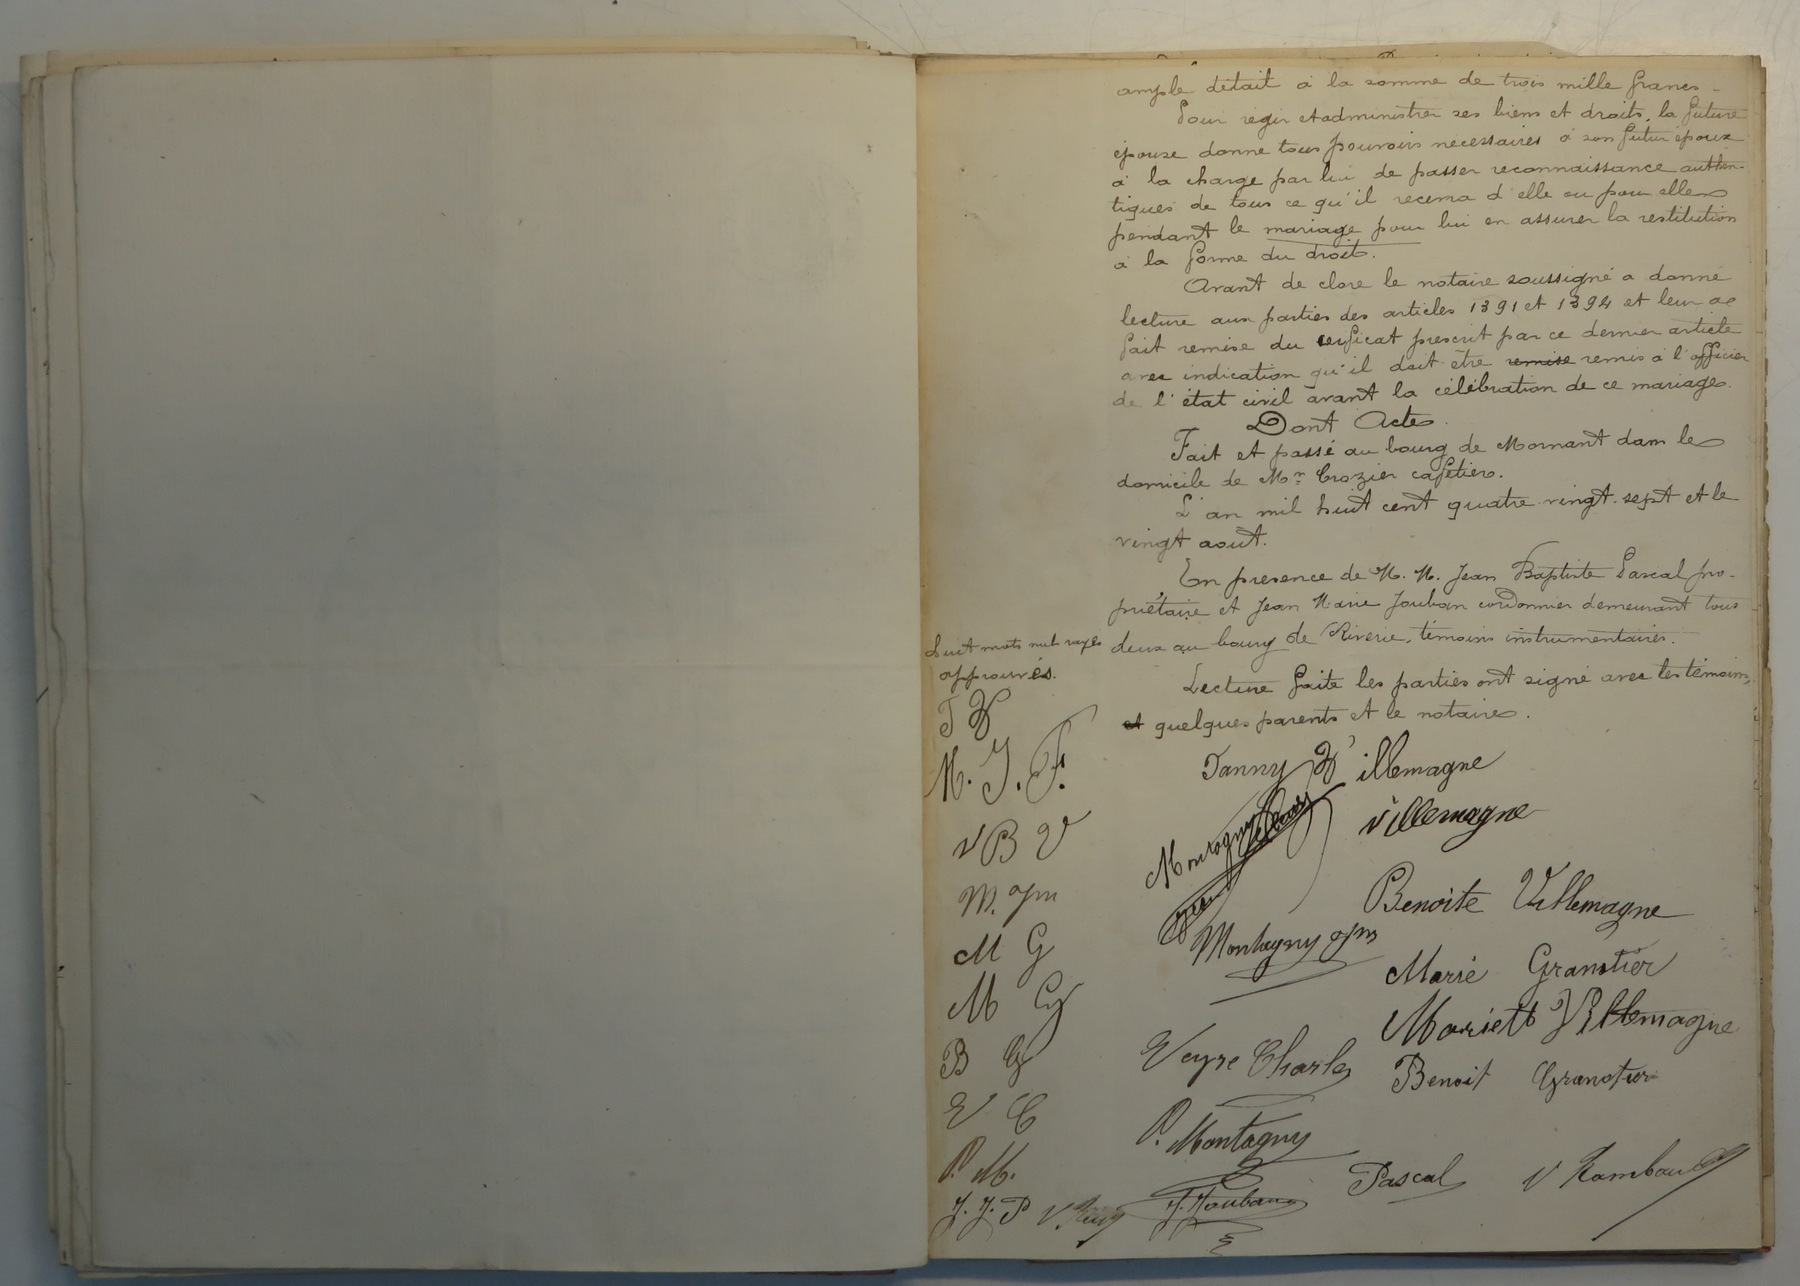 ample détail à la somme de trois mille francs.
Pour régir et administrer ses biens et droits, la future
épouse donne tous pouvoirs nécessaires à son futur époux
à la charge par lui de passer reconnaissance authen-
tiques de tous ce qu'il recevra d'elle ou pour elle
pendant le mariage pour lui en assurer la restitution
à la forme du droit.
Avant de clore le notaire soussigné a donné
lecture aux parties des articles 1391 et 1394 et leur a
fait remise du cerficat prescrit par ce dernier article
avec indication qu'il doit être remise remis à l'officier
de l'état civil avant la célébration de ce mariage.
Dont Acte.
Fait et passé au bourg de Mornant dans le
domicile de Mr Crozier cafetier.
L'an mil huit cent quatre vingt-sept et le
vingt août.
En présence de M. M. Jean Baptiste Pascal pro-
priétaire et Jean Marie Jouban cordonnier demeurant tous
deux au bourg de Riverie, témoins instrumentaires.
Lecture faite les parties ont signé avec les témoins,
et quelques parents et le notaire.
huit mots nuls rayés
approuvés.
M. J. F.
V B V
M. opm
M G
M G
B G
V C
P. M.
J. J. P
Fanny Villemagne
Villemagne
Montagny
Benoite Villemagne
Montagny
Marie Granotier
Mariett Villemagne
Veyre Charles
Benoit Granotier
P. Montagny
Pascal
J. Jouban
V Rambaud